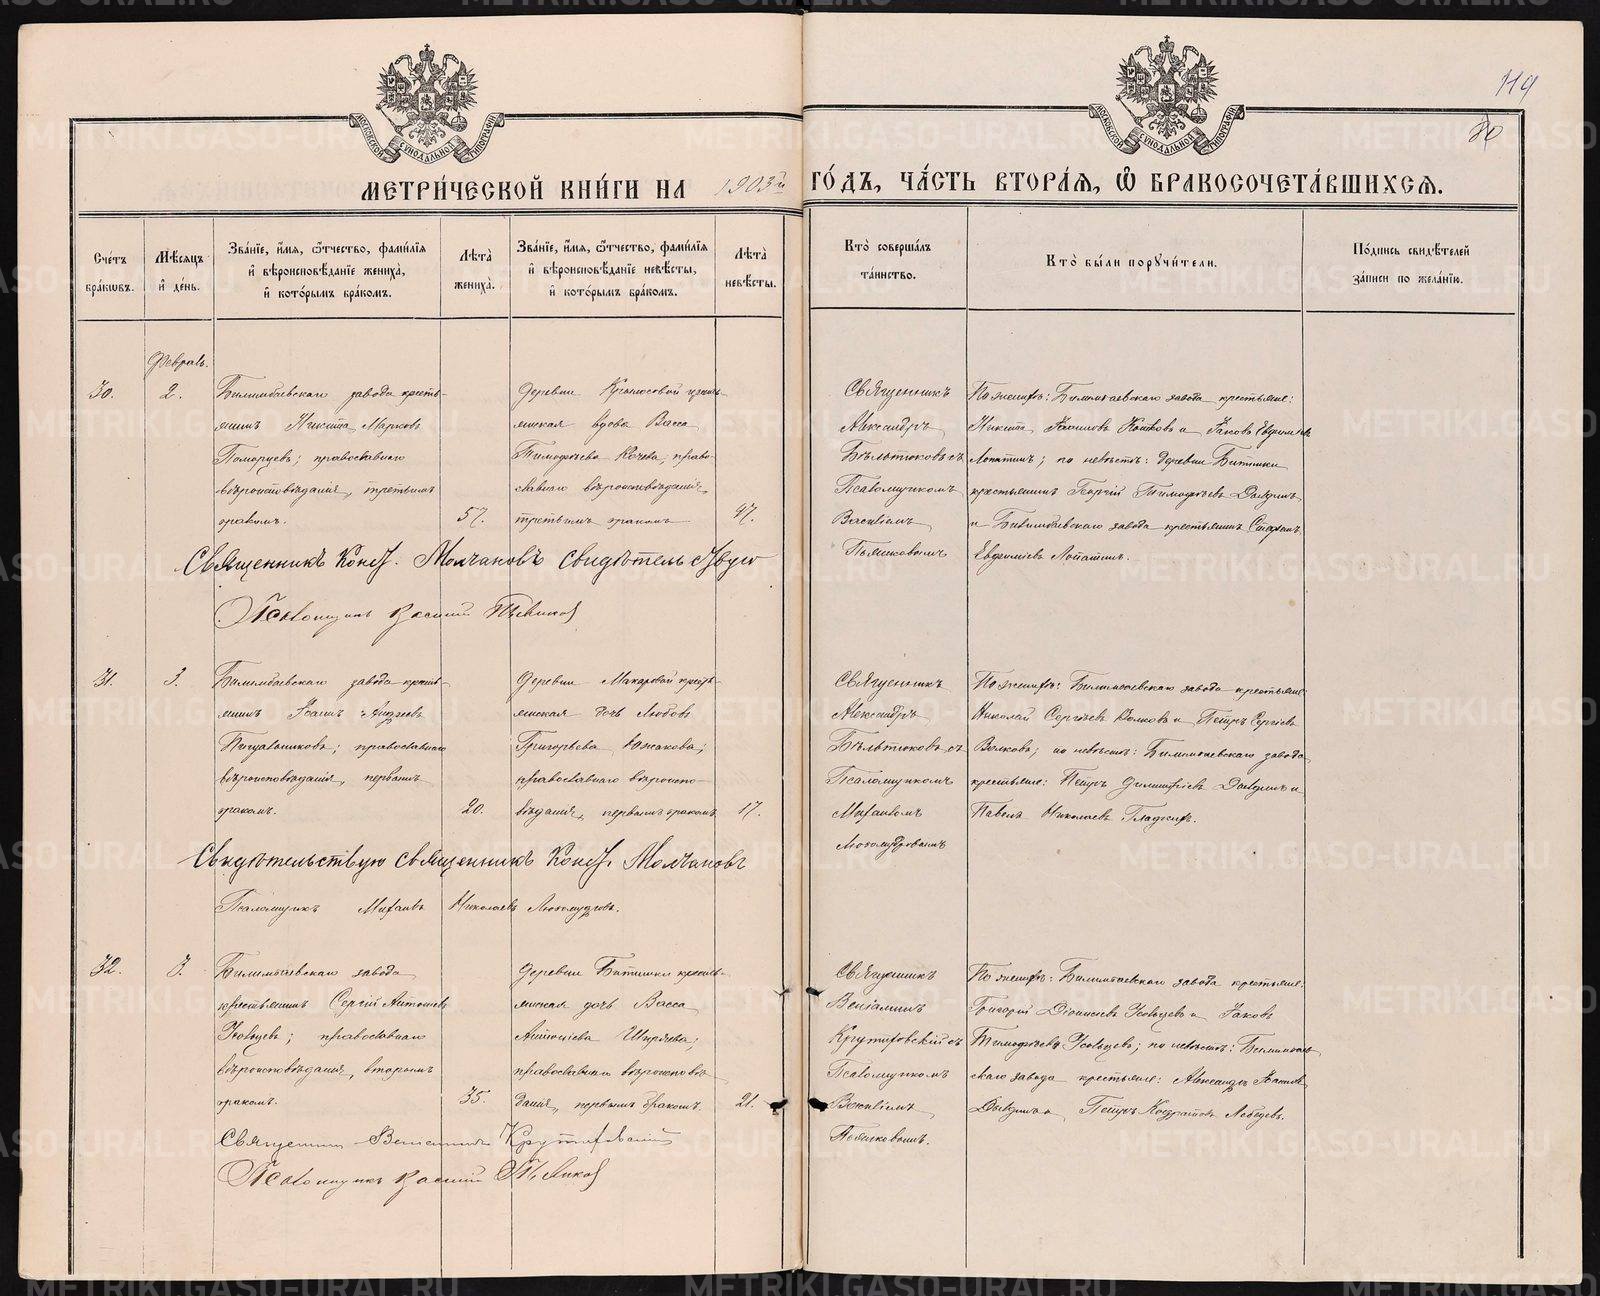 119
МЕТРИ́ЧЕСКОЙ КНИ́ГИ НА 1903й ГО́ДЪ, ЧА́СТЬ ВТОРА́Я, Ѿ БРАКОСОЧЕТА́ВШИХСЯ.
Сче́тъ бра́ковъ.
Мѣ́сяцъ и́ де́нь.
Зва́нїе, и́мя, ѻ́тчество, фами́лїя и́ вѣроисповѣ́данїе жениха̀, и́ кото́рымъ бра́комъ.
Лѣ́та жениха̀.
Зва́нїе, и́мя, ѻ́тчество, фами́лїя и́ вѣроисповѣ́данїе невѣ́сты, и́ кото́рымъ бра́комъ.
Лѣ́та невѣ́сты.
Кто̀ соверша́лъ та́инство.
Кто̀ бы́ли порꙋчи́тели.
По́дпись свидѣ́телей за́писи по жела́нїю.
Февраль.
30.
2.
Билимбаевскаго завода кресть-
янинъ Никита Марковъ
Поморцевъ; православнаго
вѣроисповѣданія, третьимъ
бракомъ.
57.
Деревни Крылосовой кресть-
янская вдова Васса
Тимофѣева Кочева, право-
славнаго вѣроисповѣданія,
третьимъ бракомъ
47.
Священникъ
Александръ
Бѣльтюковъ съ
Псаломщикомъ
Василіемъ
По женихѣ: Билимбаевскаго завода крестьяне:
Лопатинъ; по невѣстѣ: деревни Битимки
крестьянинъ Георгій Тимофѣевъ
и Билимбаевскаго завода крестьянинъ Стефанъ
Евфиміевъ Лопатинъ.
Священникъ Конст. Молчановъ свидѣтельствую
Псаломщикъ Василій
31.
3.
Билимбаевскаго завода кресть-
янинъ Іоаннъ Андреевъ
православнаго
вѣроисповѣданія, первымъ
бракомъ.
20.
Деревни Макаровой кресть-
янская дочь Любовь
Григорьева Южакова;
православнаго вѣроиспо-
вѣданія, первымъ бракомъ
17.
Священникъ
Александръ
Бѣльтюковъ съ
Псаломщикомъ
Михаиломъ
Любомудровымъ
По женихѣ: Билимбаевскаго завода крестьяне
Николай Сергѣевъ Волковъ и Петръ Сергѣевъ
Волковъ; по невѣстѣ: Билимбаевскаго завода
крестьяне: Петръ Димитріевъ и
Павелъ Николаевъ Гладкихъ.
Свидѣтельствую священникъ Конст. Молчановъ
Псаломщикъ Михаилъ Николаевъ Любомудровъ.
32.
3.
Билимбаевскаго завода
крестьянинъ Сергій Антоновъ
Усольцевъ; православнаго
вѣроисповѣданія, вторымъ
бракомъ.
35.
Деревни Битимки кресть-
янская дочь Васса
Ширяева;
православнаго вѣроисповѣ-
данія, первымъ бракомъ.
21.
Священникъ
Веніаминъ
Крутиховскій съ
Псаломщикомъ
Василіемъ
По женихѣ: Билимбаевскаго завода крестьяне:
Григорій Діонисіевъ Усольцевъ и Іаковъ
Тимофѣевъ Усольцевъ; по невѣстѣ: Билимбаев-
скаго завода крестьяне: Александръ Іоанновъ
Петръ Кондратовъ Лебедевъ.
Священникъ Веніаминъ Крутиховскій
Псаломщикъ Василій
METRIKI.GASO-URAL.RU